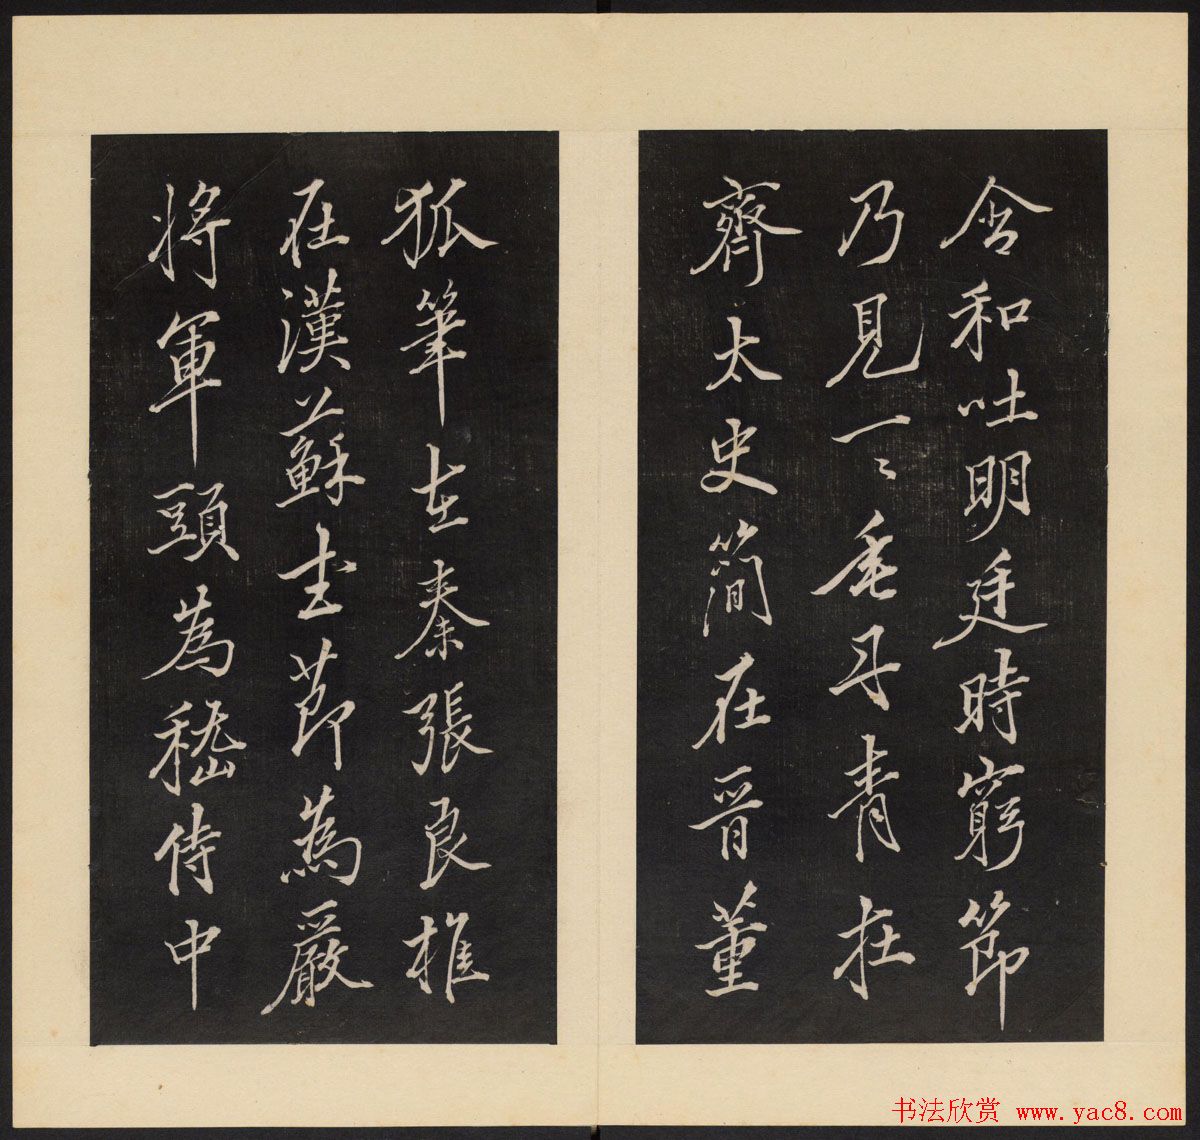 含和吐明廷時窮節
乃見一〻垂丹青在
齊太史簡在晉董
狐筆在秦張良椎
在漢蘇武節為嚴
將軍頭為嵇侍中
书法欣赏 www.yac8.com